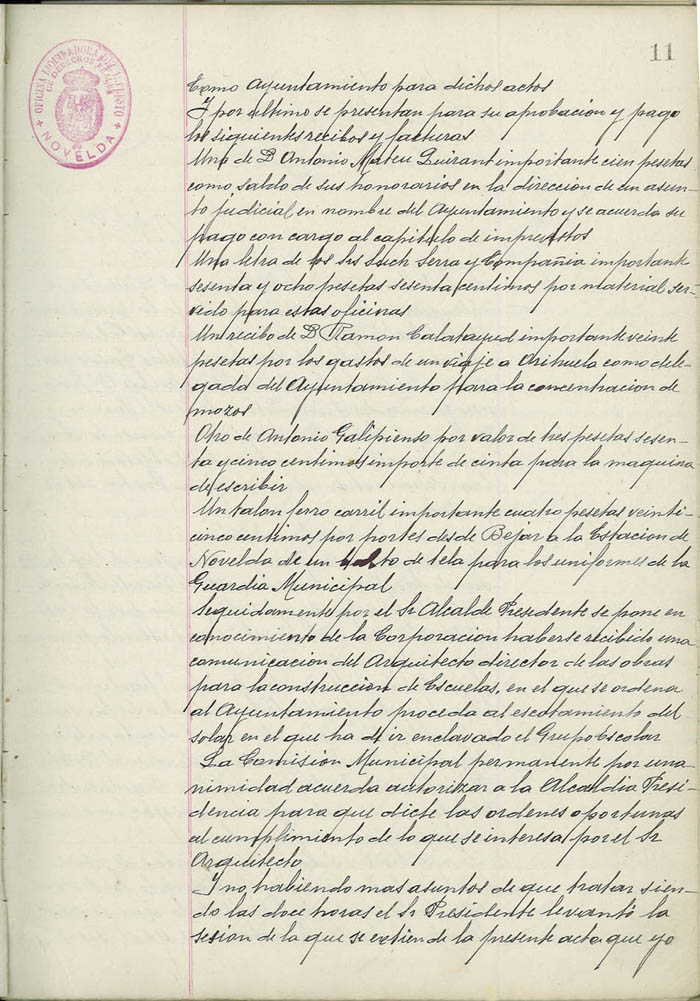 11
OFICINA LIQUIDADORA DEL IMPUESTO
DE DERECHOS REALES
NOVELDA
Como Ayuntamiento para dichos actos
Y por ultimo se presentan para su aprobacion y pago
los siguientes recibos y facturas
Una de D Antonio Mateu Quirant importante cien pesetas
como saldo de sus honorarios en la direccion de un asun-
to judicial en nombre del Ayuntamiento y se acuerda su
pago con cargo al capitulo de imprevistos
Una letra de los Srs Luch Serra y Compañia importante
sesenta y ocho pesetas sesenta centimos por material ser-
vido para estas oficinas
Un recibo de D Ramon Calatayud importante veinte
pesetas por los gastos de un viaje a Orihuela como dele-
gado del Ayuntamiento para la concentracion de
mozos
Otro de Antonio Galipienso por valor de tres pesetas sesen-
ta y cinco centimos importe de cinta para la maquina
de escribir
Un talon ferro carril importante cuatro pesetas veinti-
cinco centimos por portes desde Bejar a la Estacion de
Novelda de un bulto de tela para los uniformes de la
Guardia Municipal
Seguidamente por el Sr Alcalde Presidente se pone en
conocimiento de la Corporacion haberse recibido una
comunicacion del Arquitecto director de las obras
para la construccion de Escuelas, en el que se ordena
al Ayuntamiento proceda al escotamiento del
solar en el que ha de ir enclavado el Grupo Escolar
La Comisión Municipal permanente por una-
nimidad acuerda autorizar a la Alcaldia Presi-
dencia para que dicte las ordenes oportunas
al cumplimiento de lo que se interesa por el Sr
Arquitecto
Y no habiendo mas asuntos de que tratar sien-
do las doce horas el Sr Presidente levantó la
sesion de la que se extiende la presente acta que yo